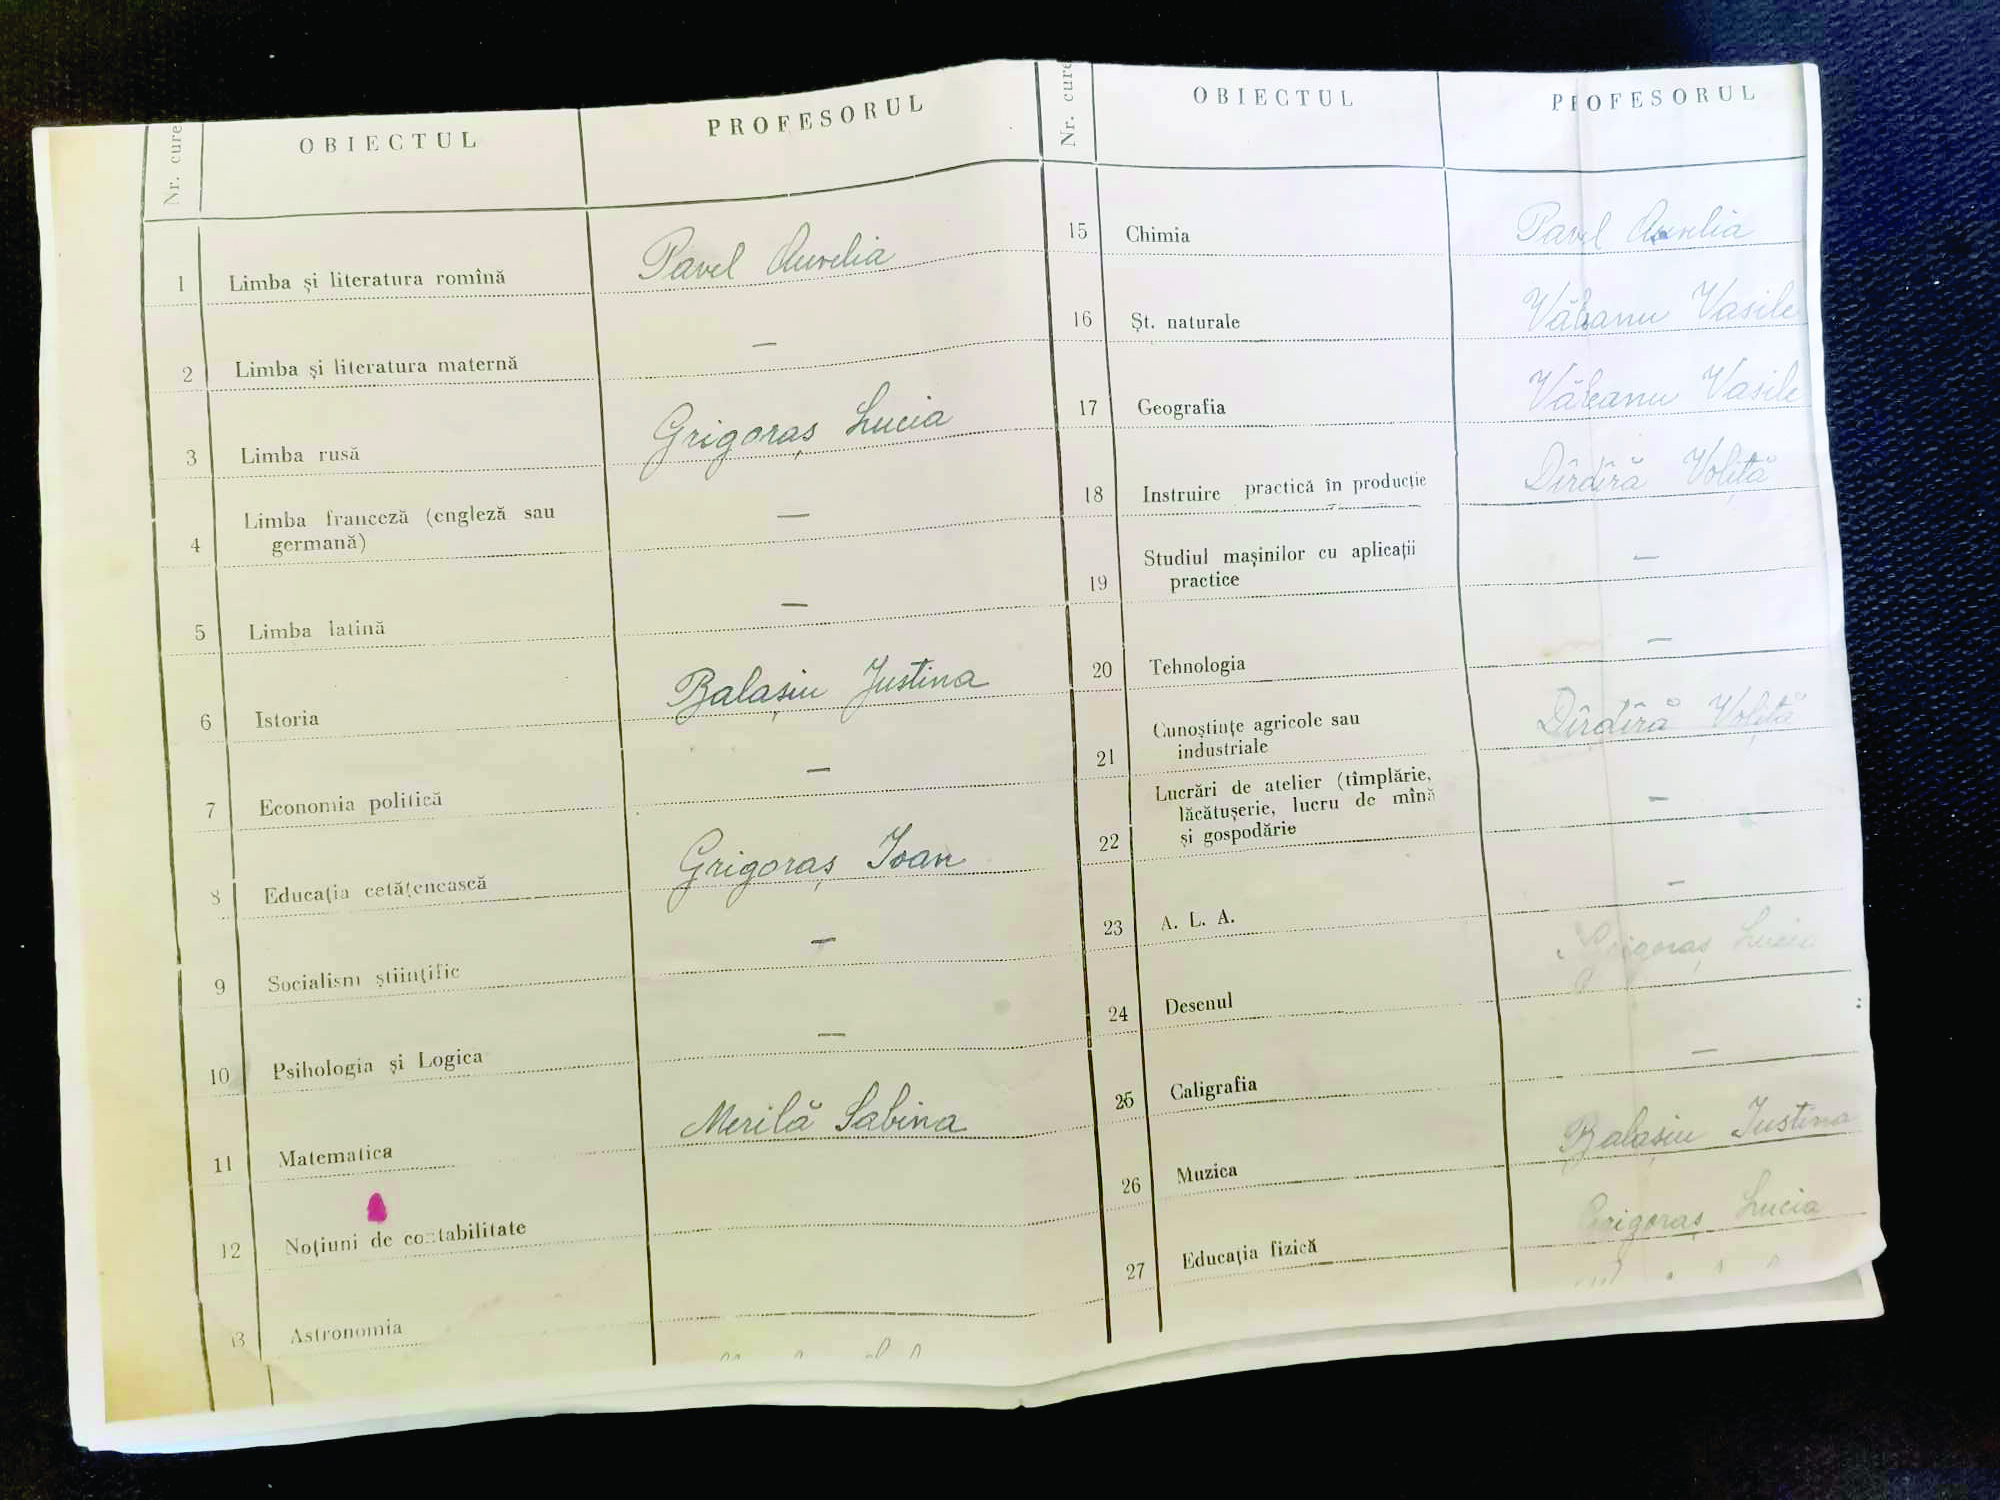 Nr. cure
OBIECTUL
PROFESORUL
1 Limba și literatura romînă Pavel Aurelia
2 Limba și literatura maternă —
3 Limba rusă Grigoraș Lucia
4 Limba franceză (engleză sau
germană) —
5 Limba latină —
6 Istoria Balașiu Justina
7 Economia politică —
8 Educația cetățenească Grigoraș Ioan
9 Socialism științific —
10 Psihologia și Logica —
11 Matematica Merilă Sabina
12 Noțiuni de contabilitate
13 Astronomia
Nr. cure
OBIECTUL
PROFESORUL
15 Chimia Pavel Aurelia
16 Șt. naturale Văleanu Vasile
17 Geografia Văleanu Vasile
18 Instruire practică în producție Dîrdîră Voliță
19 Studiul mașinilor cu aplicații
practice —
20 Tehnologia —
21 Cunoștințe agricole sau
industriale Dîrdîră Voliță
22 Lucrări de atelier (tîmplărie,
lăcătușerie, lucru de mînă
și gospodărie —
23 A. L. A. —
24 Desenul Grigoraș Lucia
25 Caligrafia —
26 Muzica Balașiu Justina
27 Educația fizică Grigoraș Lucia